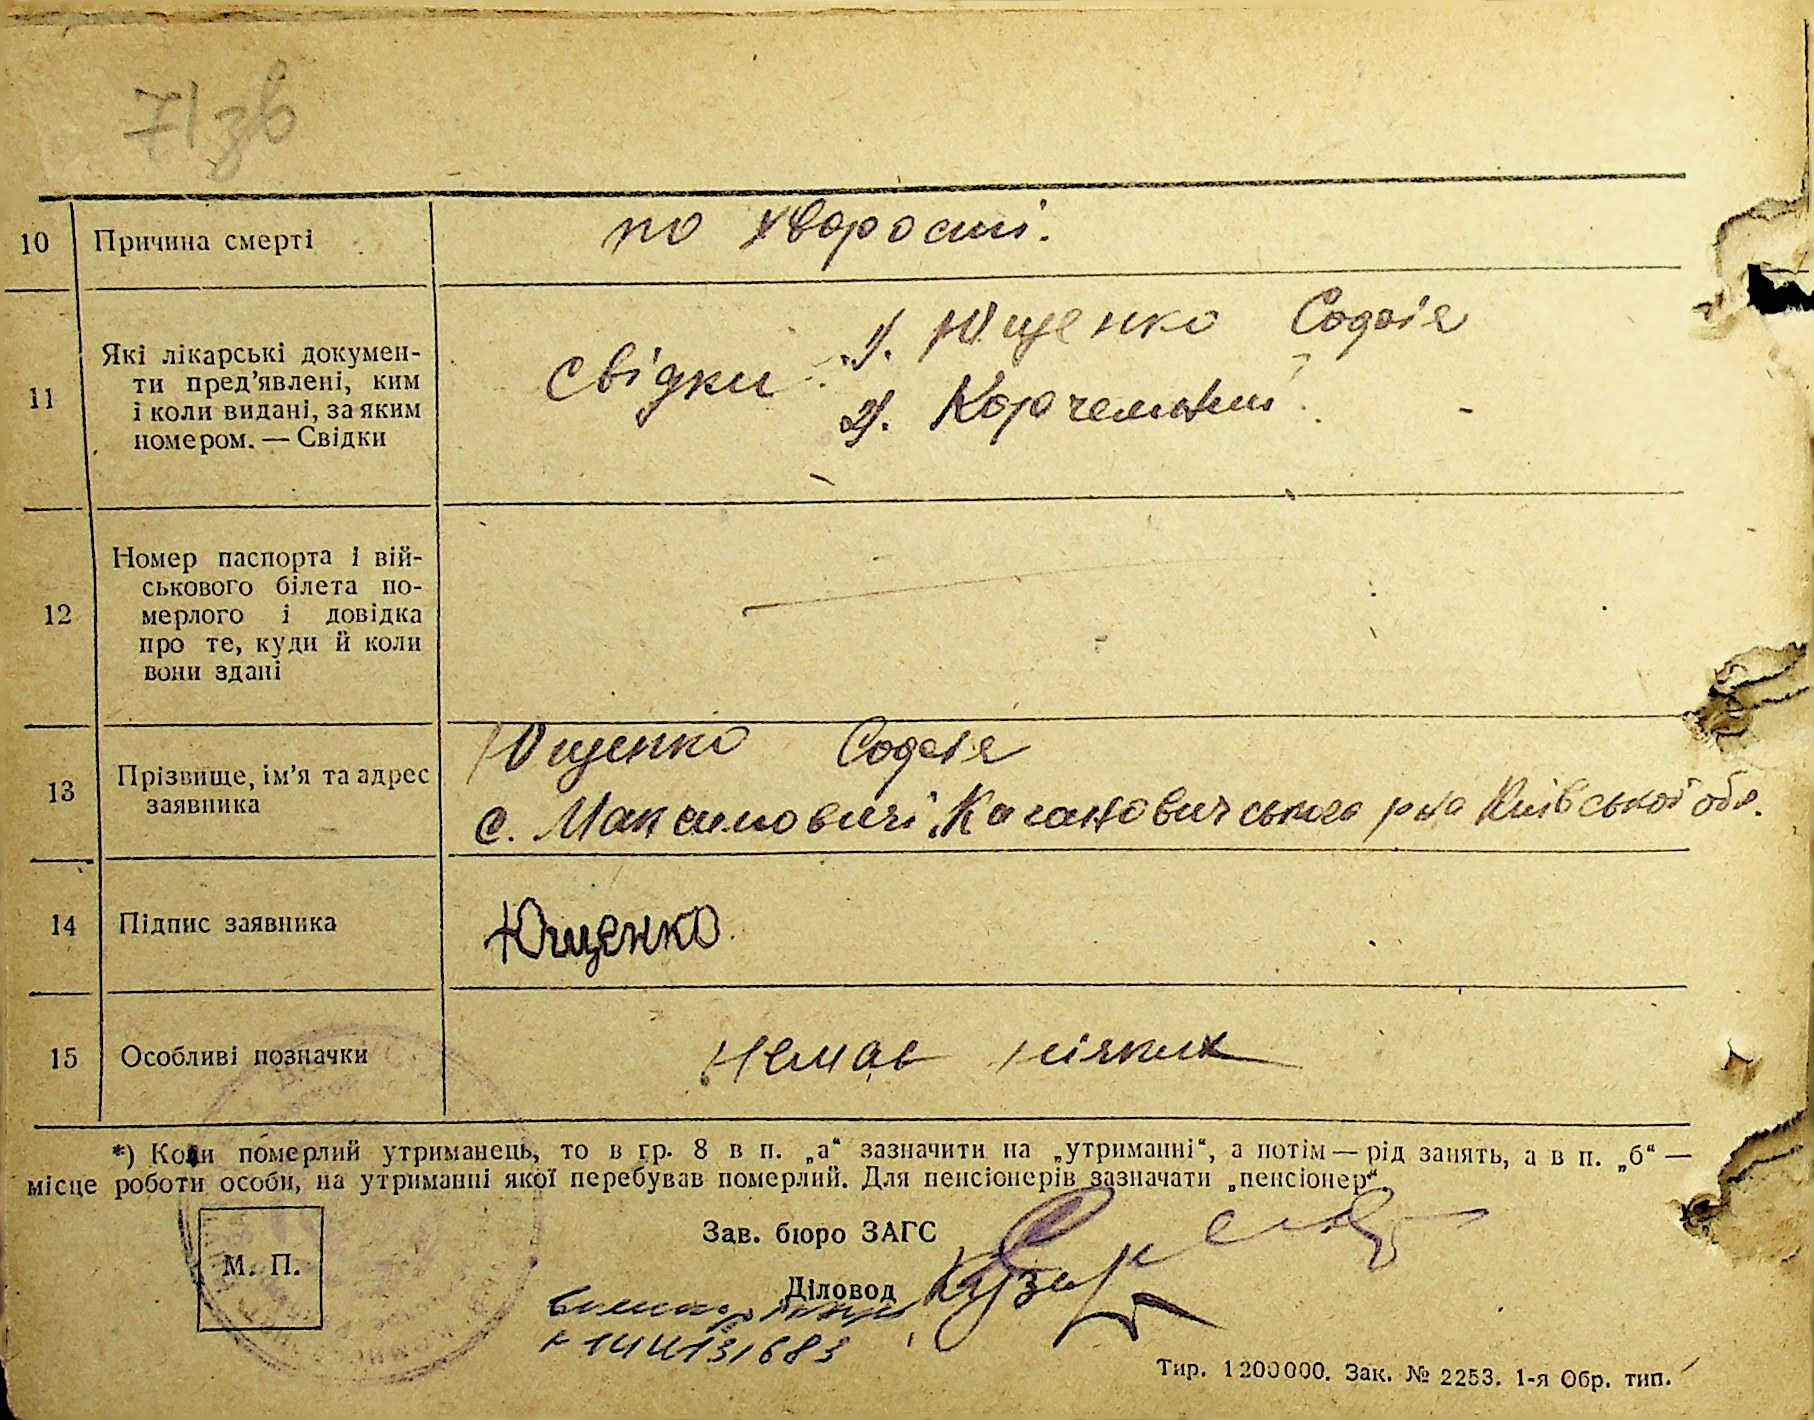 71 зв
10 Причина смерті по хворості.
11 Які лікарські докумен-
ти пред'явлені, ким
і коли видані, за яким
номером. — Свідки
Свідки: 1). Ющенко Софія
2).
12 Номер паспорта і вій-
ськового білета по-
мерлого і довідка
про те, куди й коли
вони здані
13 Прізвище, ім'я та адрес
заявника
Ющенко Софія
с. Максимовичі, Кагановичського р-на Київської обл.
14 Підпис заявника Ющенко
15 Особливі позначки немає ніяких
*) Коли померлий утриманець, то в гр. 8 в п. „а“ зазначити на „утриманні“, а потім — рід занять, а в п. „б“ —
місце роботи особи, на утриманні якої перебував померлий. Для пенсіонерів зазначати „пенсіонер“
Зав. бюро ЗАГС
М. П.
Діловод
Тир. 1200000. Зак. № 2253. 1-я Обр. тип.